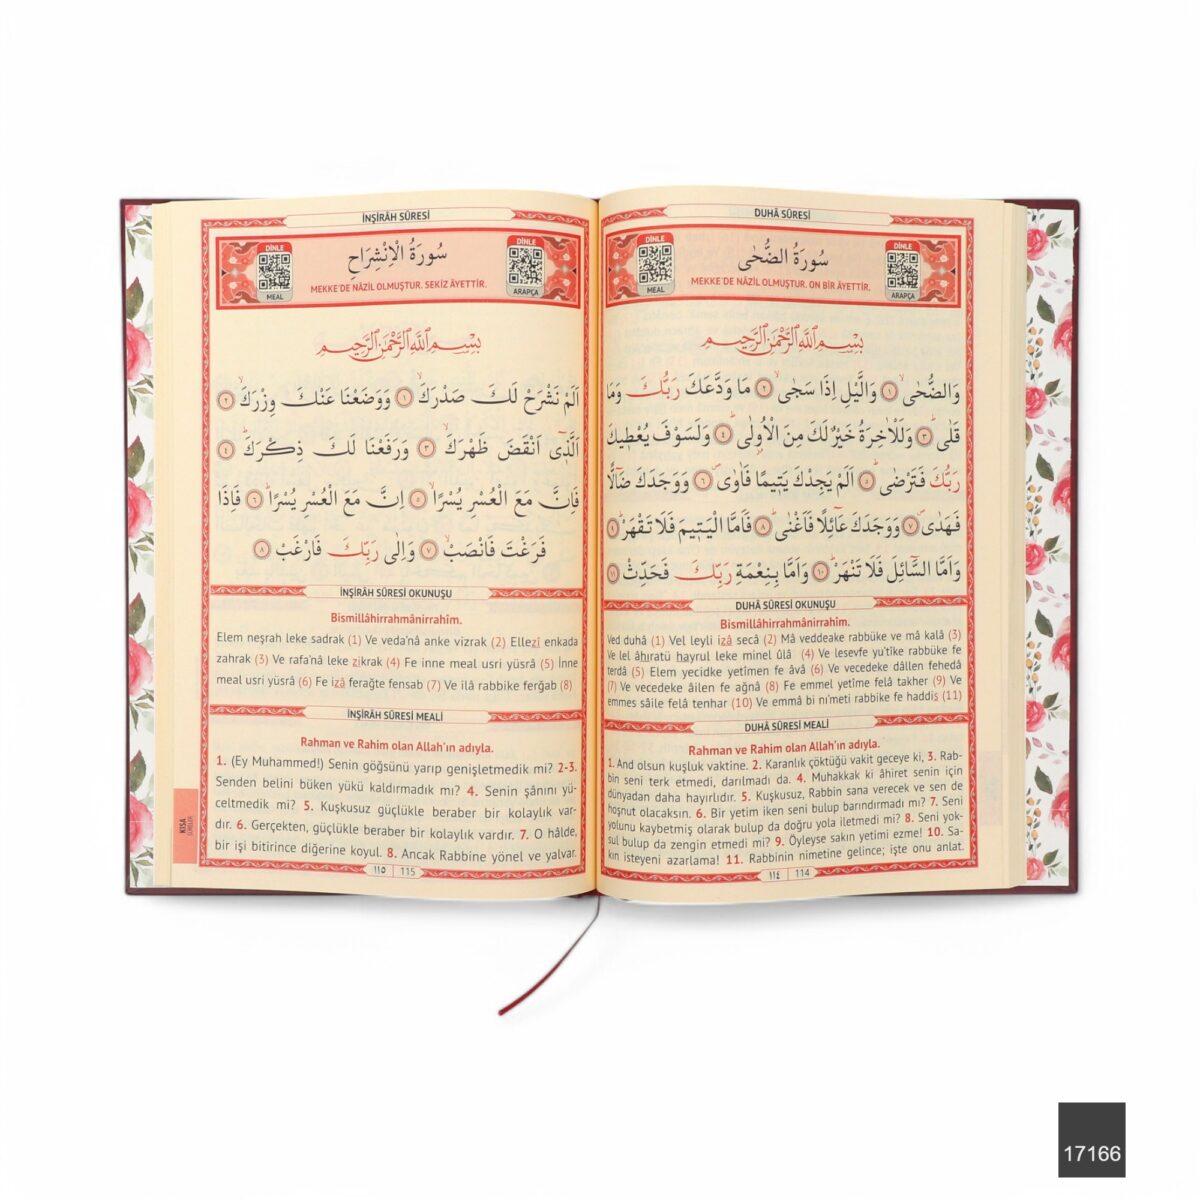 DUHÂ SÛRESİ
DİNLE
MEAL
سُورَةُ الضُّحٰى
MEKKE'DE NÂZİL OLMUŞTUR. ON BİR ÂYETTİR.
DİNLE
ARAPÇA
بِسْمِ اللّٰهِ الرَّحْمٰنِ الرَّحِيمِ
وَالضُّحٰىۙ ﴿١﴾ وَالَّيْلِ اِذَا سَجٰىۙ ﴿٢﴾ مَا وَدَّعَكَ رَبُّكَ وَمَا
قَلٰىۜ ﴿٣﴾ وَلَلْاٰخِرَةُ خَيْرٌ لَكَ مِنَ الْاُو۫لٰىۜ ﴿٤﴾ وَلَسَوْفَ يُعْط۪يكَ
رَبُّكَ فَتَرْضٰىۜ ﴿٥﴾ اَلَمْ يَجِدْكَ يَت۪يمًا فَاٰوٰىۖ ﴿٦﴾ وَوَجَدَكَ ضَٓالًّا
فَهَدٰىۖ ﴿٧﴾ وَوَجَدَكَ عَٓائِلًا فَاَغْنٰىۜ ﴿٨﴾ فَاَمَّا الْيَت۪يمَ فَلَا تَقْهَرْۜ ﴿٩﴾
وَاَمَّا السَّٓائِلَ فَلَا تَنْهَرْۜ ﴿١٠﴾ وَاَمَّا بِنِعْمَةِ رَبِّكَ فَحَدِّثْ ﴿١١﴾
DUHÂ SÛRESİ OKUNUŞU
Bismillâhirrahmânirrahîm.
Ved duhâ (1) Vel leyli izâ secâ (2) Mâ veddeake rabbüke ve mâ kalâ (3)
Ve lel âhıratü hayrul leke minel ûlâ (4) Ve lesevfe yu'tîke rabbüke fe
terdâ (5) Elem yecidke yetîmen fe âvâ (6) Ve vecedeke dâllen fehedâ
(7) Ve vecedeke âilen fe ağnâ (8) Fe emmel yetîme felâ takher (9) Ve
emmes sâile felâ tenhar (10) Ve emmâ bi ni'meti rabbike fe haddis (11)
DUHÂ SÛRESİ MEALİ
Rahman ve Rahim olan Allah'ın adıyla.
1. And olsun kuşluk vaktine. 2. Karanlık çöktüğü vakit geceye ki, 3. Rab-
bin seni terk etmedi, darılmadı da. 4. Muhakkak ki âhiret senin için
dünyadan daha hayırlıdır. 5. Kuşkusuz, Rabbin sana verecek ve sen de
hoşnut olacaksın. 6. Bir yetim iken seni bulup barındırmadı mı? 7. Seni
yolunu kaybetmiş olarak bulup da doğru yola iletmedi mi? 8. Seni yok-
sul bulup da zengin etmedi mi? 9. Öyleyse sakın yetimi ezme! 10. Sa-
kın isteyeni azarlama! 11. Rabbinin nimetine gelince; işte onu anlat.
١١٤ | 114
İNŞİRÂH SÛRESİ
DİNLE
MEAL
سُورَةُ الْاِنْشِرَاحِ
MEKKE'DE NÂZİL OLMUŞTUR. SEKİZ ÂYETTİR.
DİNLE
ARAPÇA
بِسْمِ اللّٰهِ الرَّحْمٰنِ الرَّحِيمِ
اَلَمْ نَشْرَحْ لَكَ صَدْرَكَۙ ﴿١﴾ وَوَضَعْنَا عَنْكَ وِزْرَكَۙ ﴿٢﴾
اَلَّذ۪ٓي اَنْقَضَ ظَهْرَكَۙ ﴿٣﴾ وَرَفَعْنَا لَكَ ذِكْرَكَۜ ﴿٤﴾
فَاِنَّ مَعَ الْعُسْرِ يُسْرًاۙ ﴿٥﴾ اِنَّ مَعَ الْعُسْرِ يُسْرًاۜ ﴿٦﴾ فَاِذَا
فَرَغْتَ فَانْصَبْۙ ﴿٧﴾ وَاِلٰى رَبِّكَ فَارْغَبْ ﴿٨﴾
İNŞİRÂH SÛRESİ OKUNUŞU
Bismillâhirrahmânirrahîm.
Elem neşrah leke sadrak (1) Ve veda'nâ anke vizrak (2) Ellezî enkada
zahrak (3) Ve rafa'nâ leke zikrak (4) Fe inne meal usri yüsrâ (5) İnne
meal usri yüsrâ (6) Fe izâ ferağte fensab (7) Ve ilâ rabbike ferğab (8)
İNŞİRÂH SÛRESİ MEALİ
Rahman ve Rahim olan Allah'ın adıyla.
1. (Ey Muhammed!) Senin göğsünü yarıp genişletmedik mi? 2-3.
Senden belini büken yükü kaldırmadık mı? 4. Senin şânını yü-
celtmedik mi? 5. Kuşkusuz güçlükle beraber bir kolaylık var-
dır. 6. Gerçekten, güçlükle beraber bir kolaylık vardır. 7. O hâlde,
bir işi bitirince diğerine koyul. 8. Ancak Rabbine yönel ve yalvar.
١١٥ | 115
KISA
17166